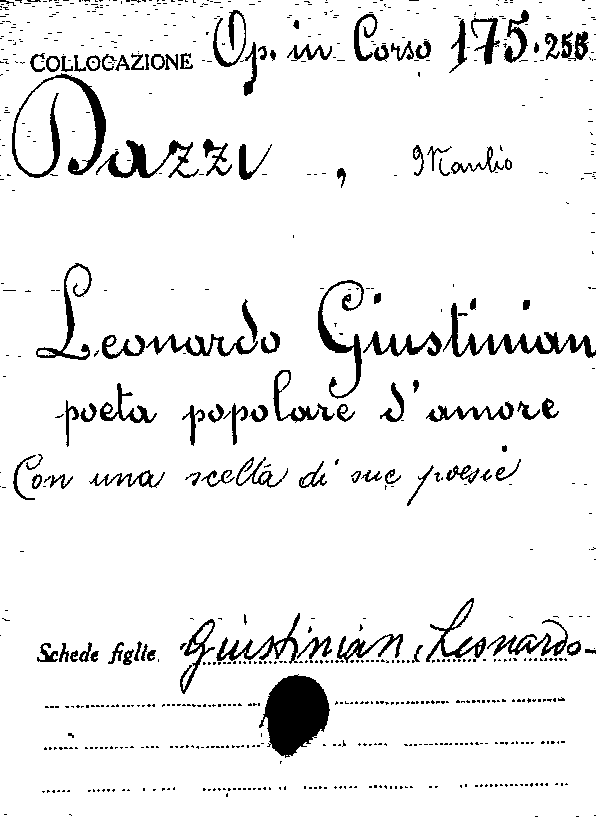 COLLOCAZIONE Op. in Corso 175.255
Dazzi, Manlio
Leonardo Giustinian
poeta popolare d'amore
Con una scelta di sue poesie
Schede figlie Giustinian, Leonardo-